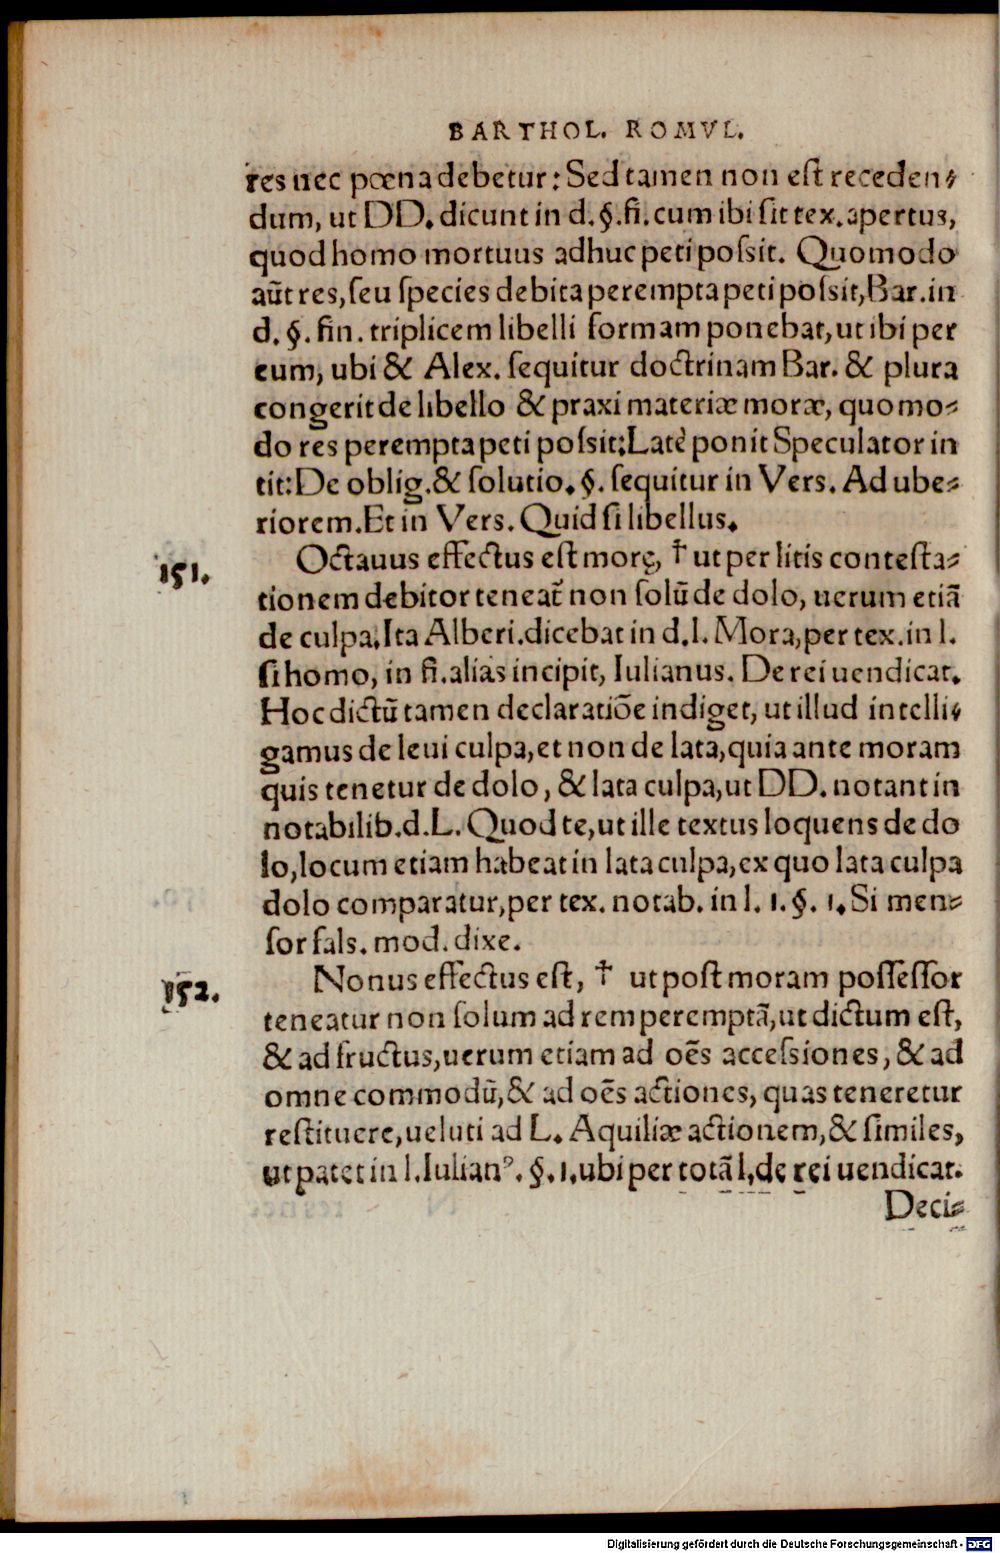 BARTHOL. ROMVL.
res nec pœna debetur: Sed tamen non est receden⸗
dum, ut DD. dicunt in d. §. fi. cum ibi sit tex. apertus,
quod homo mortuus adhuc peti possit. Quomodo
aūt res, seu species debita perempta peti possit, Bar. in
d. §. fin. triplicem libelli formam ponebat, ut ibi per
eum, ubi & Alex. sequitur doctrinam Bar. & plura
congerit de libello & praxi materiæ moræ, quomo⸗
do res perempta peti possit: Latè ponit Speculator in
tit: De oblig. & solutio. §. sequitur in Vers. Ad ube⸗
riorem. Et in Vers. Quid si libellus.
151. Octauus effectus est morę, † ut per litis contesta⸗
tionem debitor teneat᷑ non solū de dolo, uerum etiã
de culpa. Ita Alberi. dicebat in d. l. Mora, per tex. in l.
si homo, in fi. alias incipit, Iulianus. De rei uendicat.
Hoc dictū tamen declaratiõe indiget, ut illud intelli⸗
gamus de leui culpa, et non de lata, quia ante moram
quis tenetur de dolo, & lata culpa, ut DD. notant in
notabilib. d. L. Quod te, ut ille textus loquens de do
lo, locum etiam habeat in lata culpa, ex quo lata culpa
dolo comparatur, per tex. notab. in l. 1. §. 1. Si men⸗
sor fals. mod. dixe.
152. Nonus effectus est, † ut post moram possessor
teneatur non solum ad rem peremptã, ut dictum est,
& ad fructus, uerum etiam ad oēs accessiones, & ad
omne commodū, & ad oēs actiones, quas teneretur
restituere, ueluti ad L. Aquiliæ actionem, & similes,
ut patet in l. Iulianꝰ. §. 1. ubi per totã l, de rei uendicat.
Deci⸗
Digitalisierung gefördert durch die Deutsche Forschungsgemeinschaft - DFG